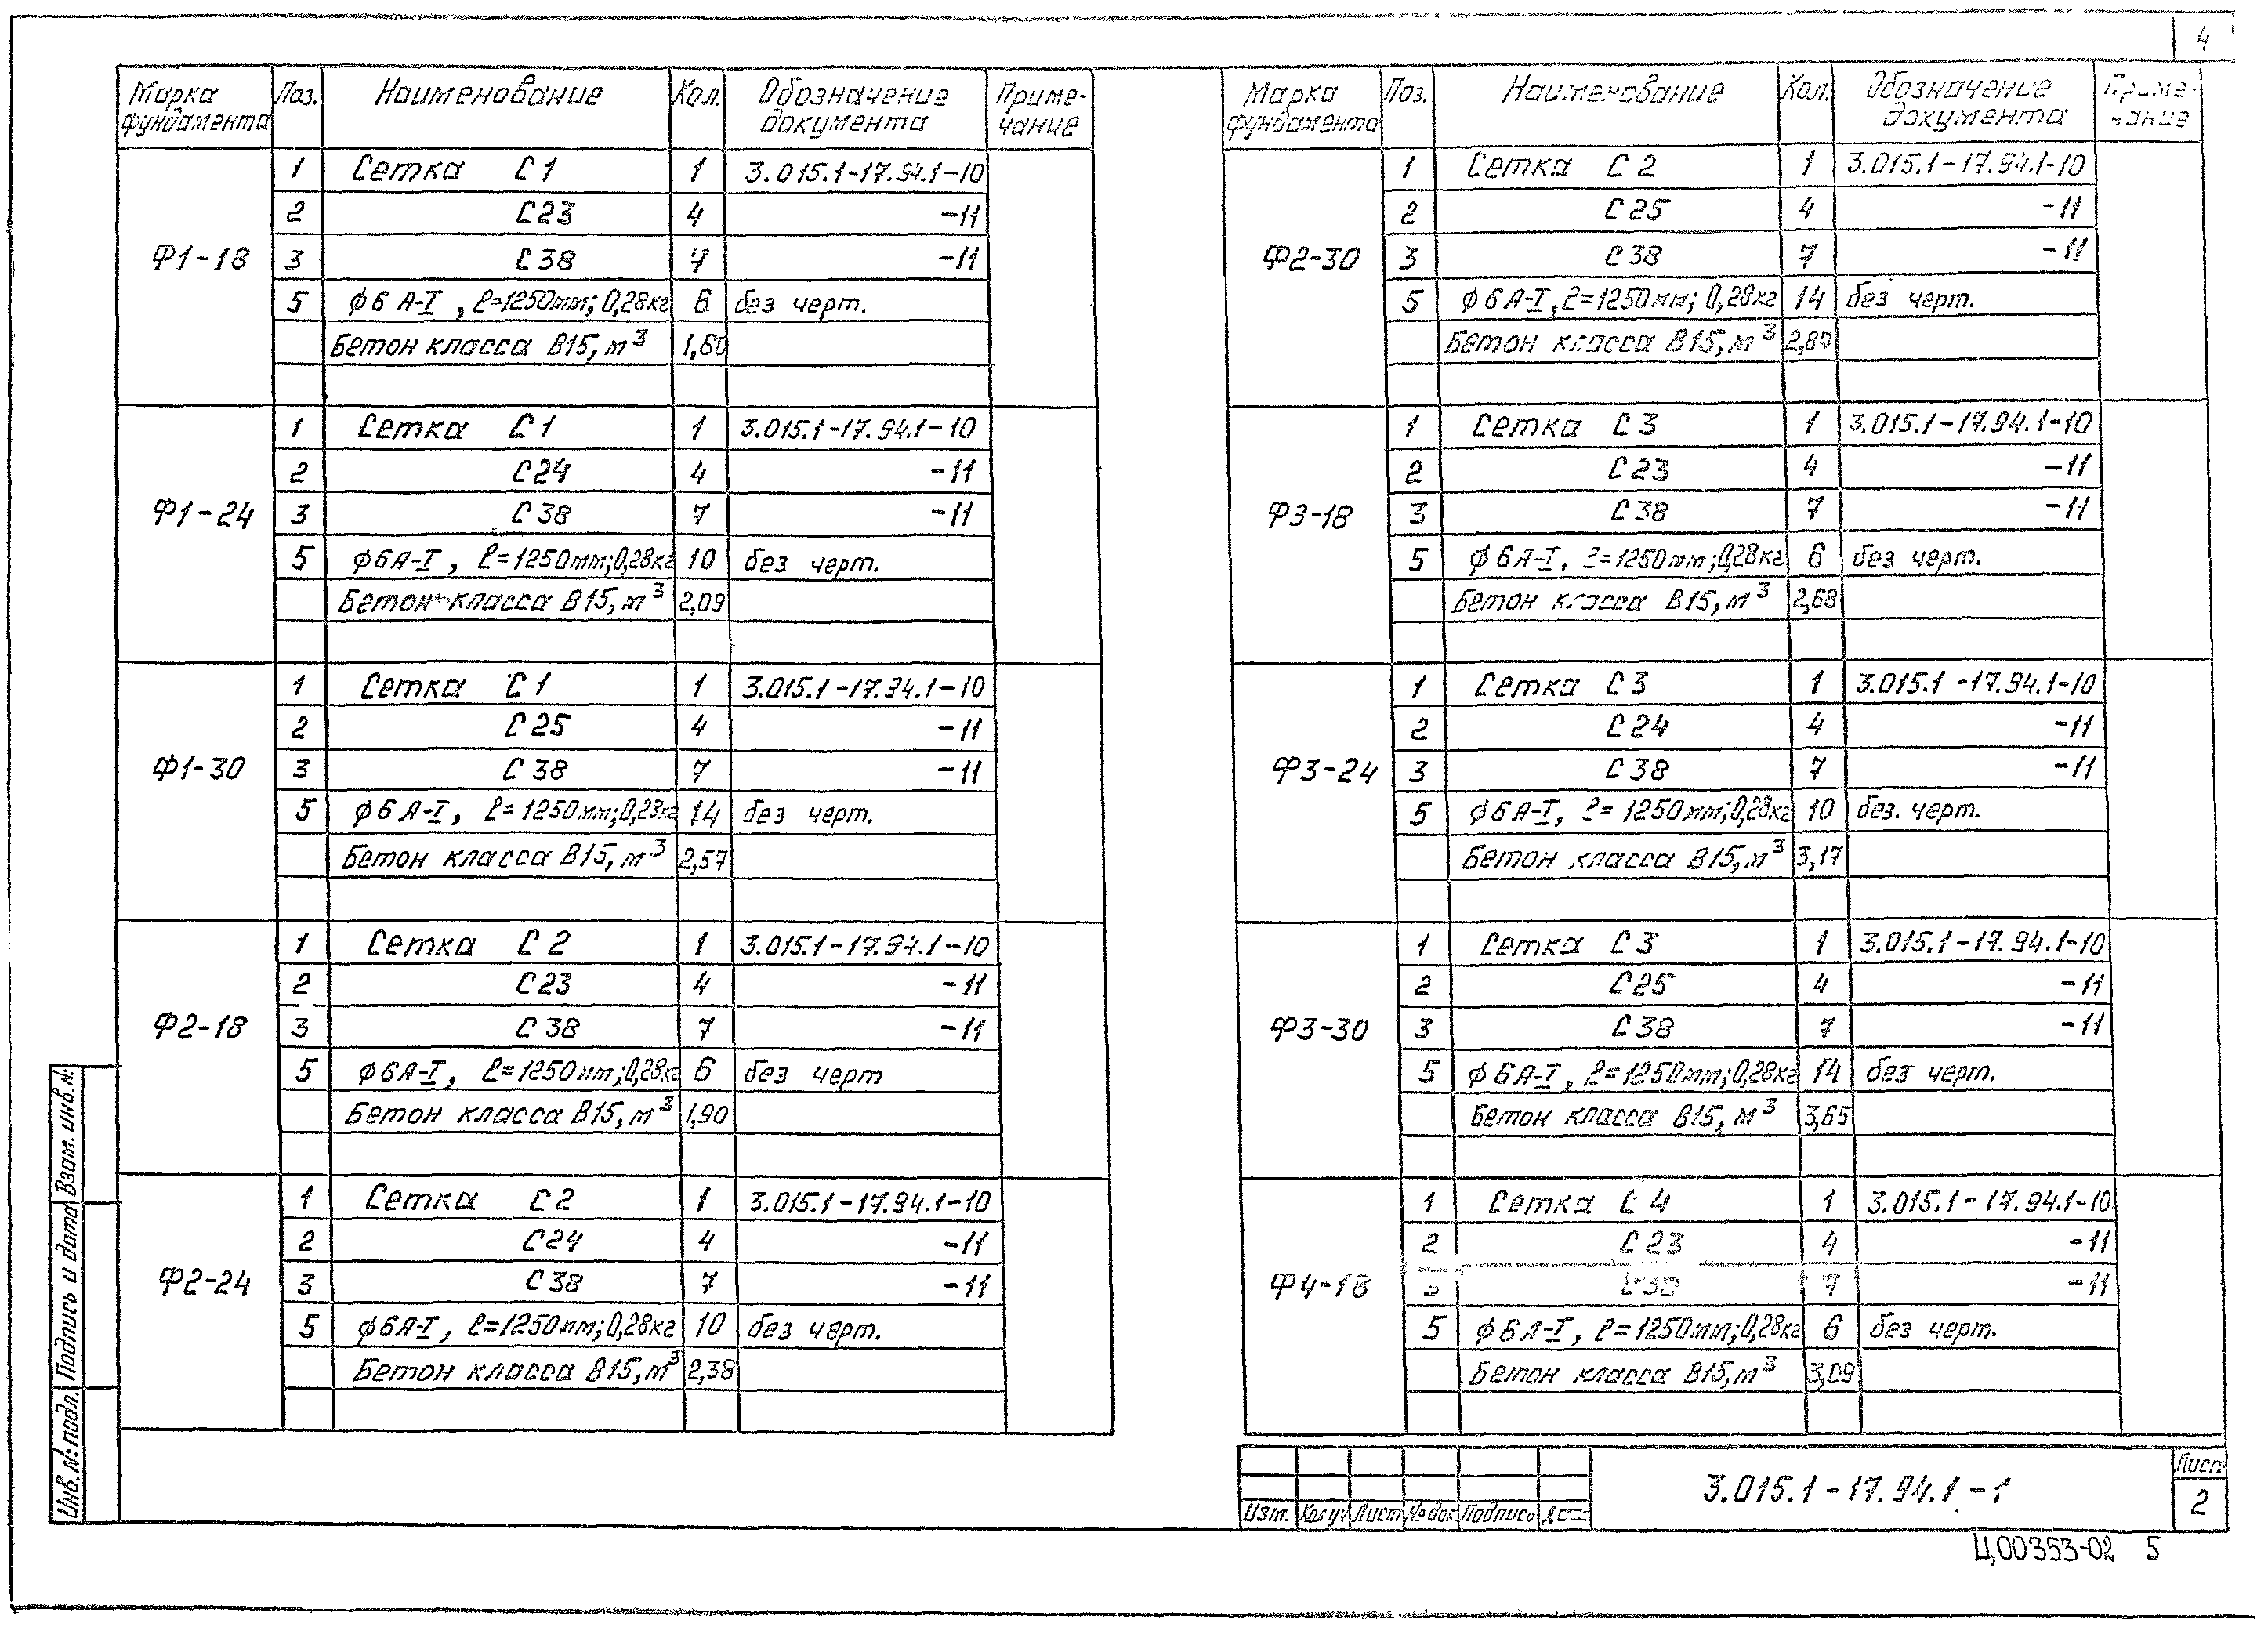 4
Марка фундамента Поз. Наименование Кол. Обозначение документа Примечание
Ф1-18
1 Сетка С1 1 3.015.1-17.94.1-10
2 С23 4 -11
3 С38 7 -11
5 ф6 А-I, ℓ=1250мм; 0,28кг 6 без черт.
Бетон класса В15, м³ 1,60
Ф1-24
1 Сетка С1 1 3.015.1-17.94.1-10
2 С24 4 -11
3 С38 7 -11
5 ф6А-I, ℓ=1250мм; 0,28кг 10 без черт.
Бетон класса В15, м³ 2,09
Ф1-30
1 Сетка С1 1 3.015.1-17.94.1-10
2 С25 4 -11
3 С38 7 -11
5 ф6А-I, ℓ=1250мм; 0,28кг 14 без черт.
Бетон класса В15, м³ 2,57
Ф2-18
1 Сетка С2 1 3.015.1-17.94.1-10
2 С23 4 -11
3 С38 7 -11
5 ф6А-I, ℓ=1250мм; 0,28кг 6 без черт
Бетон класса В15, м³ 1,90
Ф2-24
1 Сетка С2 1 3.015.1-17.94.1-10
2 С24 4 -11
3 С38 7 -11
5 ф6А-I, ℓ=1250мм; 0,28кг 10 без черт.
Бетон класса В15, м³ 2,38
Марка фундамента Поз. Наименование Кол. Обозначение документа Примечание
Ф2-30
1 Сетка С2 1 3.015.1-17.94.1-10
2 С25 4 -11
3 С38 7 -11
5 ф6А-I, ℓ=1250мм; 0,28кг 14 без черт.
Бетон класса В15, м³ 2,87
Ф3-18
1 Сетка С3 1 3.015.1-17.94.1-10
2 С23 4 -11
3 С38 7 -11
5 ф6А-I, ℓ=1250мм; 0,28кг 6 без черт.
Бетон класса В15, м³ 2,68
Ф3-24
1 Сетка С3 1 3.015.1-17.94.1-10
2 С24 4 -11
3 С38 7 -11
5 ф6А-I, ℓ=1250мм; 0,28кг 10 без. черт.
Бетон класса В15, м³ 3,17
Ф3-30
1 Сетка С3 1 3.015.1-17.94.1-10
2 С25 4 -11
3 С38 7 -11
5 ф6А-I, ℓ=1250мм; 0,28кг 14 без черт.
Бетон класса В15, м³ 3,65
Ф4-18
1 Сетка С4 1 3.015.1-17.94.1-10
2 С23 4 -11
3 С38 7 -11
5 ф6А-I, ℓ=1250мм; 0,28кг 6 без черт.
Бетон класса В15, м³ 3,09
Инв. №: подл. Подпись и дата Взам. инв. №:
Изм. Кол уч Лист № док. Подпись
3.015.1-17.94.1-1
Лист
2
Ц00353-02 5